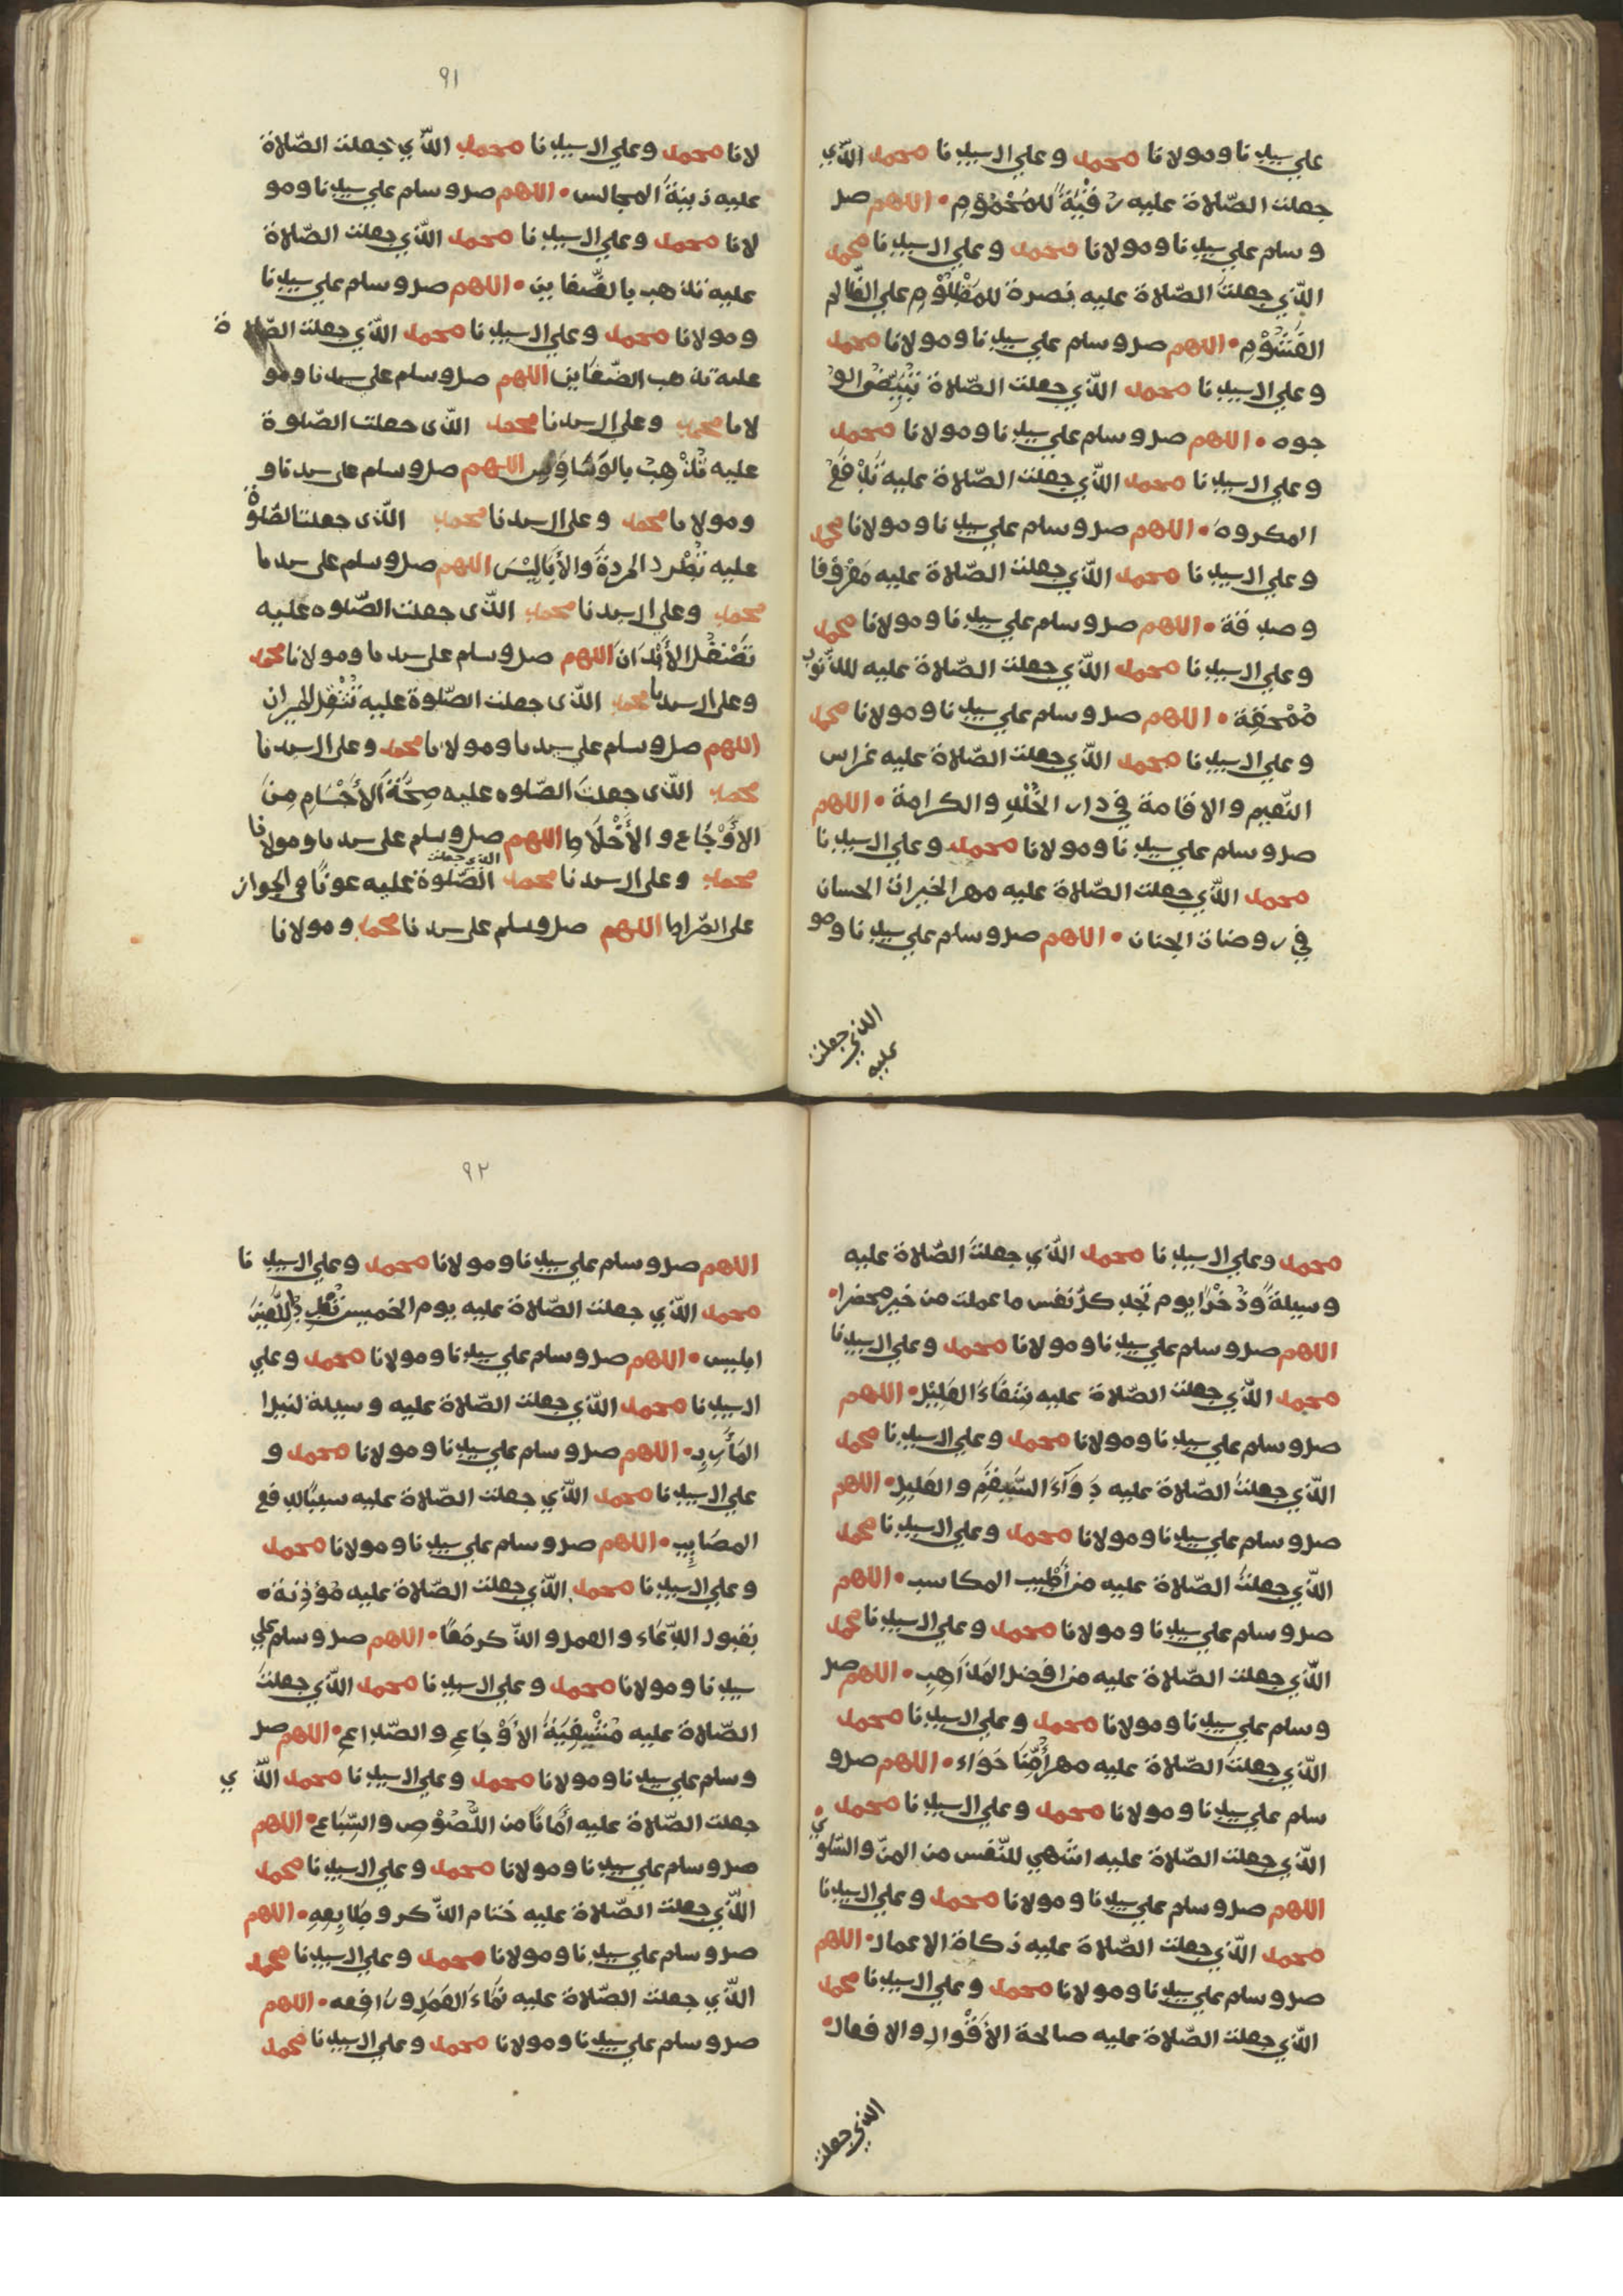 علي سيدنا ومولانا محمد وعلي ال سيدنا محمد الذّي
جعلت الصّلاة عليه رقيةً للمحموم • اللهم صل
وسلم علي سيدنا ومولانا محمد وعلي ال سيدنا محمد
الذّي جعلت الصّلاة عليه نصرة للمظلوم علي الظالم
الغشوم • اللهم صل وسلم علي سيدنا ومولانا محمد
وعلي ال سيدنا محمد الذّي جعلت الصّلاة تبيّض الو
جوه • اللهم صل وسلم علي سيدنا ومولانا محمد
وعلي ال سيدنا محمد الذّي جعلت الصّلاة عليه تدفع
المكروه • اللهم صل وسلم علي سيدنا ومولانا محمد
وعلي ال سيدنا محمد الذّي جعلت الصّلاة عليه معروفا
وصدقة • اللهم صل وسلم علي سيدنا ومولانا محمد
وعلي ال سيدنا محمد الذّي جعلت الصّلاة عليه للذّنوب
ممحقة • اللهم صل وسلم علي سيدنا ومولانا محمد
وعلي ال سيدنا محمد الذّي جعلت الصّلاة عليه غراس
النّعيم والاقامة في دار الخُلْدِ والكرامة • اللهم
صل وسلم علي سيدنا ومولانا محمد وعلي ال سيدنا
محمد الذّي جعلت الصّلاة عليه مهر الخيرات الحسان
في روضات الجنان • اللهم صل وسلم علي سيدنا ومو
الذي جعلت
عليه
٩١
لانا محمد وعلي ال سيدنا محمد الذّي جعلت الصّلاة
عليه زينةَ المجالس • اللهم صل وسلم علي سيدنا ومو
لانا محمد وعلي ال سيدنا محمد الذّي جعلت الصّلاة
عليه تذهب بالضّغاين • اللهم صل وسلم علي سيدنا
ومولانا محمد وعلي ال سيدنا محمد الذّي جعلت الصّلاة
عليه تذهب الضّغاين اللهم صل وسلم علي سيدنا ومو
لانا محمد وعلى ال سيدنا محمد الذّى جعلت الصّلوة
عليه تُذْهِبُ بالوَسَاوِس اللهم صل وسلم على سيدنا و
ومولانا محمد وعلى ال سيدنا محمد الذّى جعلت الصّلوة
عليه تَطْرد المردةَ والأَبَالِيْسَ اللهم صل وسلم على سيدنا
محمد وعلى ال سيدنا محمد الذّى جعلت الصّلوه عليه
تَصْقُل الأَبْدَانَ اللهم صل وسلم على سيدنا ومولانا محمد
وعلى ال سيدنا محمد الذّى جعلت الصّلوة عليه تُثْقِلُ الميزان
اللهم صل وسلم على سيدنا ومولانا محمد وعلى ال سيدنا
محمد الذّى جعلتَ الصّلوه عليه صِحَّةَ الأَجْسَامِ مِنَ
الأَوْجَاع والأَخْلَاطِ اللهم صل وسلم على سيدنا ومولانا
محمد وعلى ال سيدنا محمد الذي جعلت الصّلوة عليه عونًا في الجواز
على الصّراط اللهم صل وسلم على سيدنا محمد ومولانا
محمد وعلي ال سيدنا محمد الذّي جعلتَ الصّلاة عليه
وسيلةً وذُخْرًا يوم تجد كلّ نفس ما عملت من خير محضرا •
اللهم صل وسلم علي سيدنا ومولانا محمد وعلي ال سيدنا
محمد الذّي جعلت الصّلاة عليه شفَاءَ الغليْل • اللهم
صل وسلم علي سيدنا ومولانا محمد وعلي ال سيدنا محمد
الذّي جعلتَ الصّلاة عليه دَوَآءَ السَّقِيْمِ والعَليلِ • اللهم
صل وسلم علي سيدنا ومولانا محمد وعلي ال سيدنا محمد
الذّي جعلتَ الصّلاة عليه من أَطْيب المكاسب • اللهم
صل وسلم علي سيدنا ومولانا محمد وعلي ال سيدنا محمد
الذّي جعلت الصّلاة عليه من افضل المَذَاهِبِ • اللهم صل
وسلم علي سيدنا ومولانا محمد وعلي ال سيدنا محمد
الذّي جعلتَ الصّلاة عليه مهر أُمِّنَا حَوَاء • اللهم صل و
سلم علي سيدنا ومولانا محمد وعلي ال سيدنا محمد
الذّي جعلت الصّلاة عليه اشهي للنّفس من المنّ والسّلوي •
اللهم صل وسلم علي سيدنا ومولانا محمد وعلي ال سيدنا
محمد الذّي جعلت الصّلاة عليه زكاة الاعمال • اللهم
صل وسلم علي سيدنا ومولانا محمد وعلي ال سيدنا محمد
الذّي جعلت الصّلاة عليه صالحة الأَقْوالِ والافعال •
الذي جعلت
٩٢
اللهم صل وسلم علي سيدنا ومولانا محمد وعلي ال سيدنا
محمد الذّي جعلت الصّلاة عليه يوم الخميس اللّعينَ
ابليس • اللهم صل وسلم علي سيدنا ومولانا محمد وعلي
ال سيدنا محمد الذّي جعلت الصّلاة عليه وسيلة لنيل ا
المأَرِبِ • اللهم صل وسلم علي سيدنا ومولانا محمد و
علي ال سيدنا محمد الذّي جعلت الصّلاة عليه سببًا لدفع
المصَايِب • اللهم صل وسلم علي سيدنا ومولانا محمد
وعلي ال سيدنا محمد الذّي جعلت الصّلاة عليه مُؤذِنة •
بقبول الدّعَاء والعمل والذّكر مَعًا • اللهم صل وسلم علي
سيدنا ومولانا محمد وعلي ال سيدنا محمد الذّي جعلتَ
الصّلاة عليه مُشْفِيَةَ الأَوْجَاعِ والصّداعِ • اللهم صل
وسلم علي سيدنا ومولانا محمد وعلي ال سيدنا محمد الذّي
جعلت الصّلاة عليه أَمَانًا من اللُّصُوْصِ والسِّبَاع • اللهم
صل وسلم علي سيدنا ومولانا محمد وعلي ال سيدنا محمد
الذّي جعلت الصّلاة عليه ختام الذّكر وطَابِعِهِ • اللهم
صل وسلم علي سيدنا ومولانا محمد وعلي ال سيدنا محمد
الذّي جعلت الصّلاة عليه نمَاءَ العَمَلِ ورَافِعه • اللهم
صل وسلم علي سيدنا ومولانا محمد وعلي ال سيدنا محمد